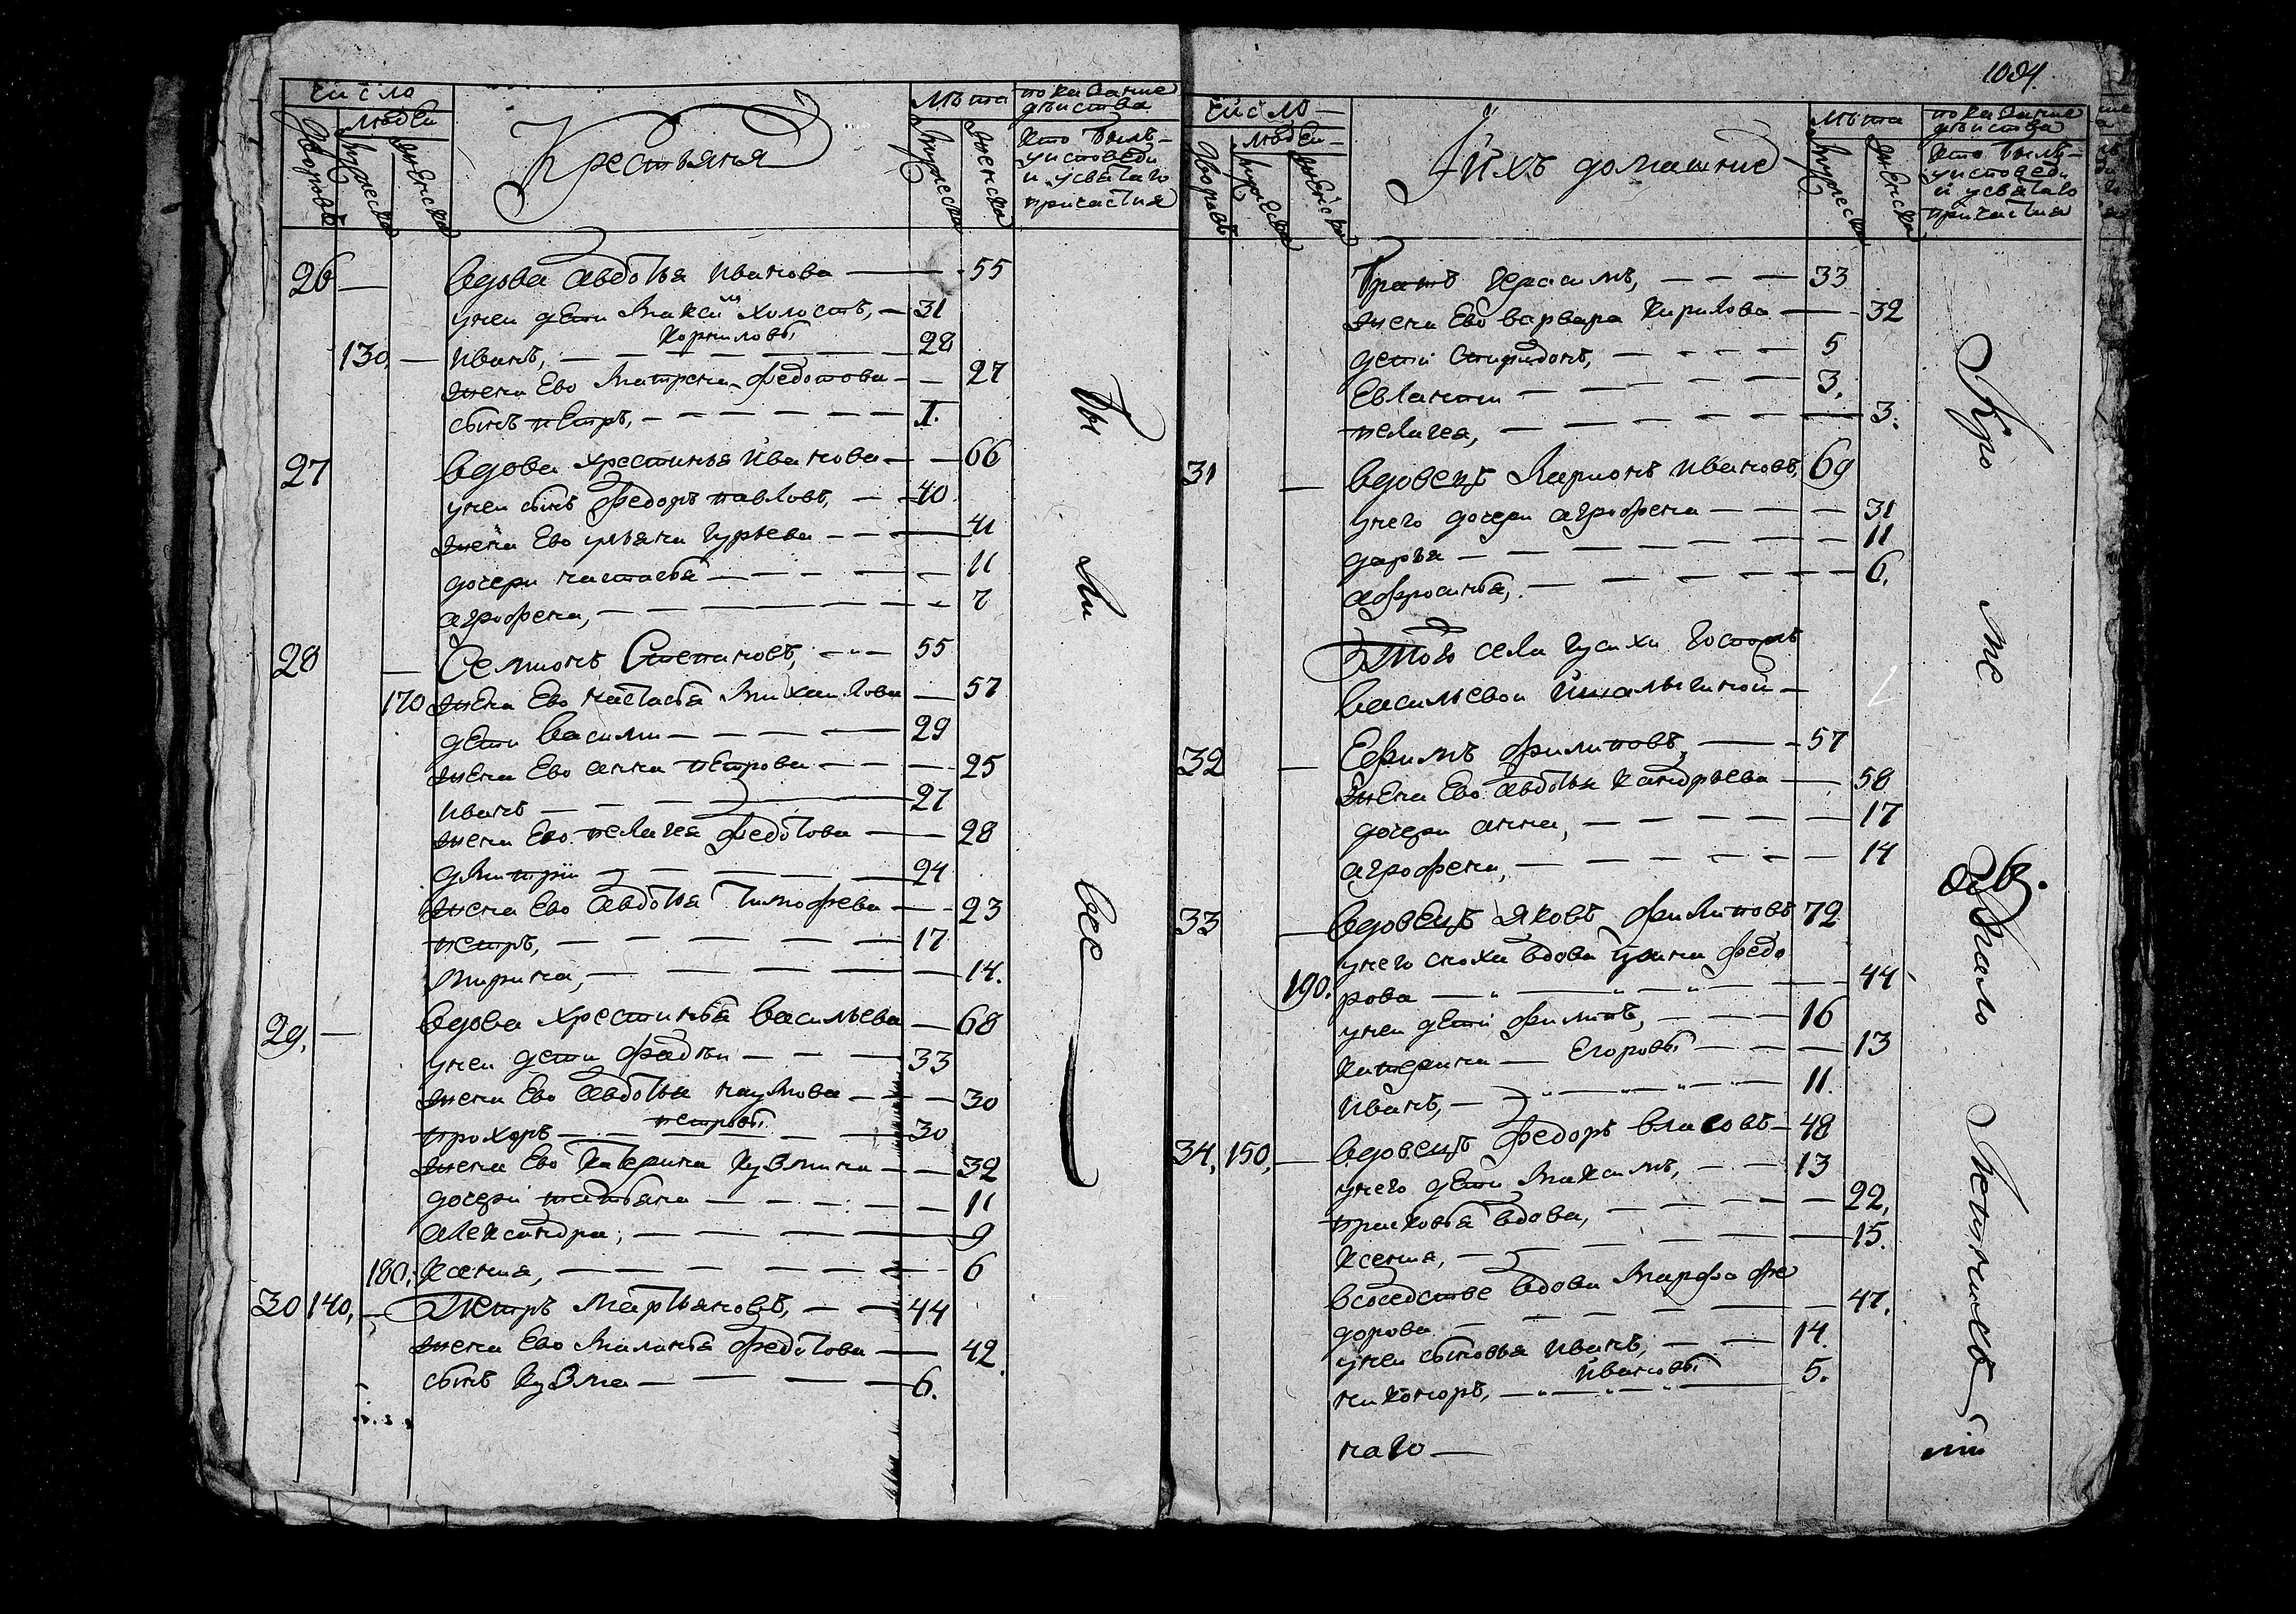 число
людей
дворовъ
мужеска
женска
Крестьяня
лѣта
мужеска
женска
показание
действа
кто былъ
уисповеди
и усвятаго
причастия
26 — вдова авдотья иванова — 55
унеи дети максим холостъ, — 31
корниловы
130, — иванъ, — 28
жена Ево матрена федотова — 27
сынъ петръ, — 1.
27 вдова хрестинья иванова — 66
унеи сынъ федоръ павловъ, — 40
жена Ево ульяна гурьева — 41
дочери настасья — 11
агрофена, — 7
28 — Семионъ Степановъ, — 55
170 жена Ево настасья михаилова — 57
дети васили — 29
жена Ево анна петрова — 25
иванъ — 27
жена Ево пелагея федотова — 28
дмитрїи — 24
жена Ево авдотья тимофева — 23
петръ, — 17
марина, — 14.
29, — вдова хрестинья васильева — 68
унеи дети фадѣи — 33
жена Ево авдотья наумова — 30
петровы
прохоръ — 30
жена Ево катерина кузмина — 32
дочери татьяна — 11
александра, — 9
180, ксения, — 6
30 140, — Петръ мартьяновъ, — 44
жена Ево маланья федотова — 42
сынъ кузма — 6.
бы
ли
все
1094.
число
людей
дворовъ
мужеска
женска
Ихъ домашние
лѣта
мужеска
женска
показание
действа
кто былъ
уисповеди
и усвятаго
причастия
братъ герасимъ, — 33
жена Ево варвара кирилова — 32
дети спиридонъ, — 5
Евлампи — 3.
пелагея, — 3.
31 — вдовецъ ларионъ ивановъ, 69
унего дочери агрофена — 31
дарья — 11
афросинья, — 6.
Того села гусихи госпожъ
васильевои
32 — Ефимъ филиповъ, — 57
жена Ево авдотья кандрьева — 58
дочери анна, — 17
агрофена, — 14
33 — вдовецъ яковъ филиповъ 72
унего сноха вдова федо
190. рова — 44
унеи дети филипъ, — 16
катерина — Егоровы — 13
иванъ, — 11.
34, 150, — вдовецъ федоръ власовъ — 48
унего дети максимъ, — 13
прасковья вдова, — 22,
ксения, — 15.
всоседстве вдова марфа фе
дорова — 47.
унеи сыновья иванъ, — 14.
ивановы
никоноръ, — 5.
наго —
Кро
ме